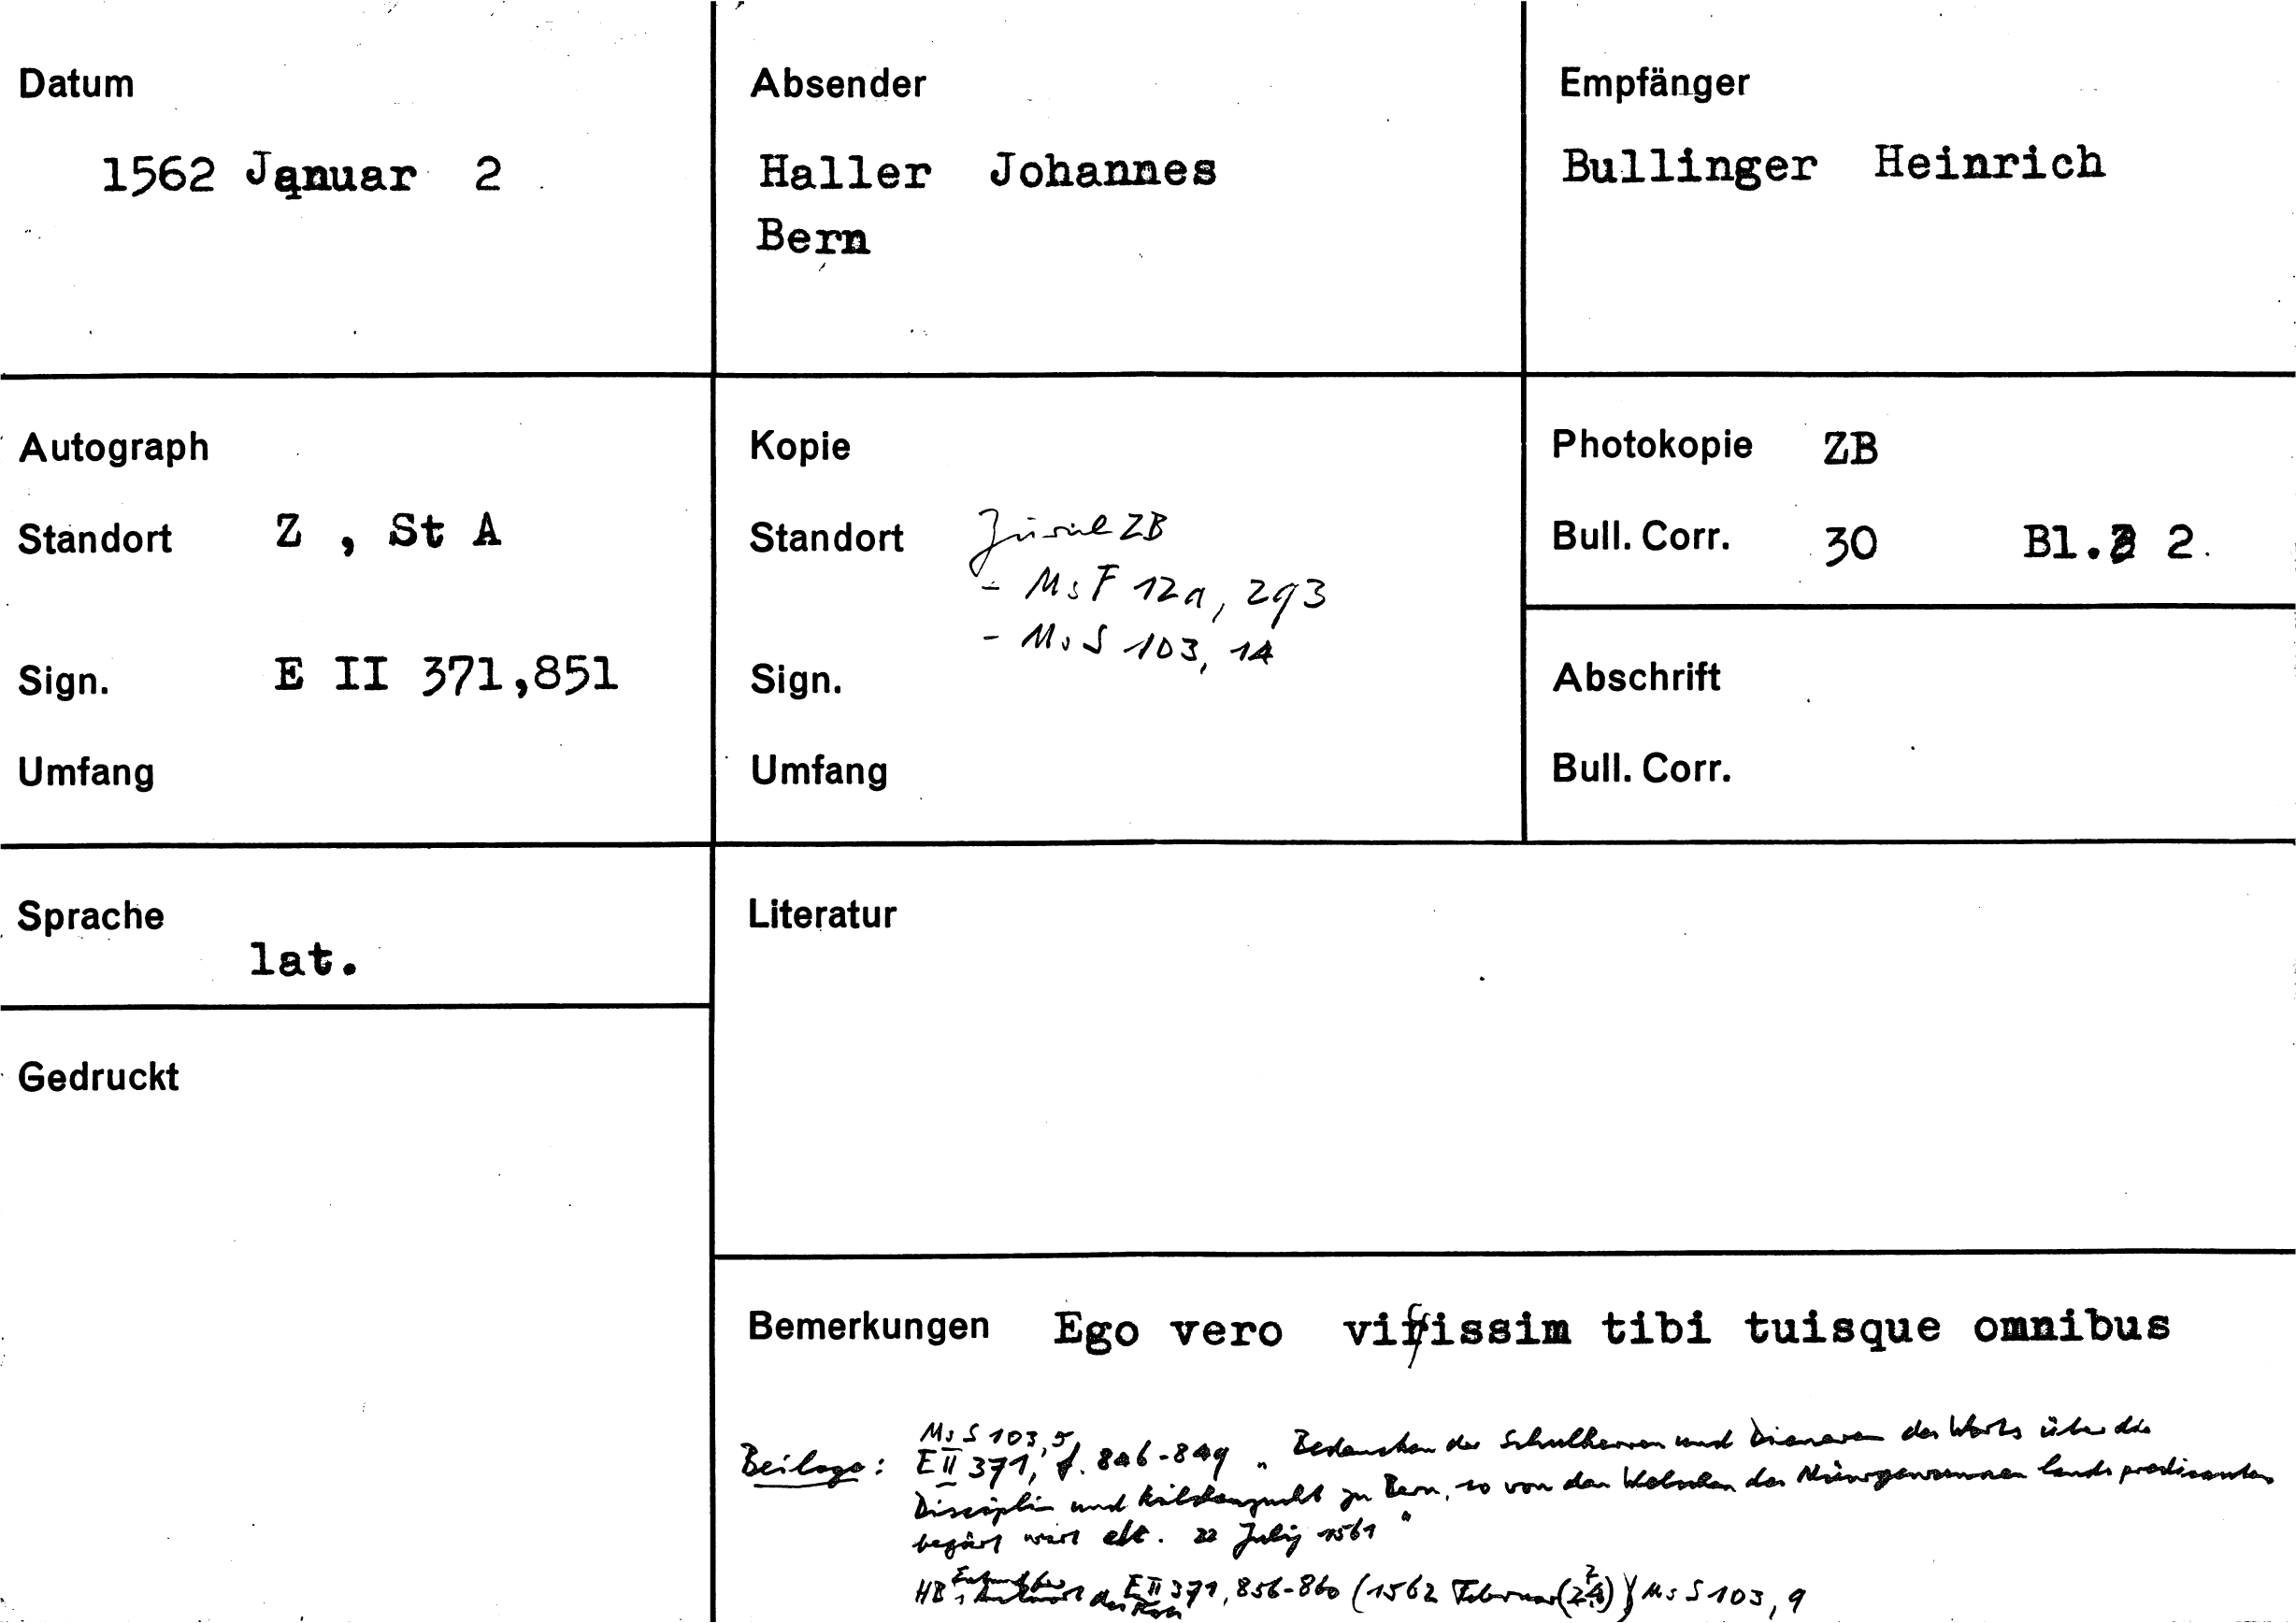 Datum
1562 Januar 2
Absender
Haller Johannes
Bern
Empfänger
Bullinger Heinrich
Autograph
Standort Z , St A
Sign. E II 371,851
Umfang
Kopie
Standort Zürich ZB
- Ms F 12a, 293
- Ms S 103, 14
Sign.
Umfang
Photokopie ZB
Bull. Corr. 30 Bl. 2.
Abschrift
Bull. Corr.
Sprache
lat.
Gedruckt
Literatur
Bemerkungen Ego vero vicissim tibi tuisque omnibus
Ms S 103, 5
Beilage: E II 371, f. 846-849 „Bedencken der Schulherren und Dieneren des Worts über die
Disciplin und kilchenzucht zu Bern, so von den Welschen des landts predicanten
begärt wirt etc. 22 Julij 1561"
HB E II 371, 856-860 (1562 Februar Ms S 103, 9